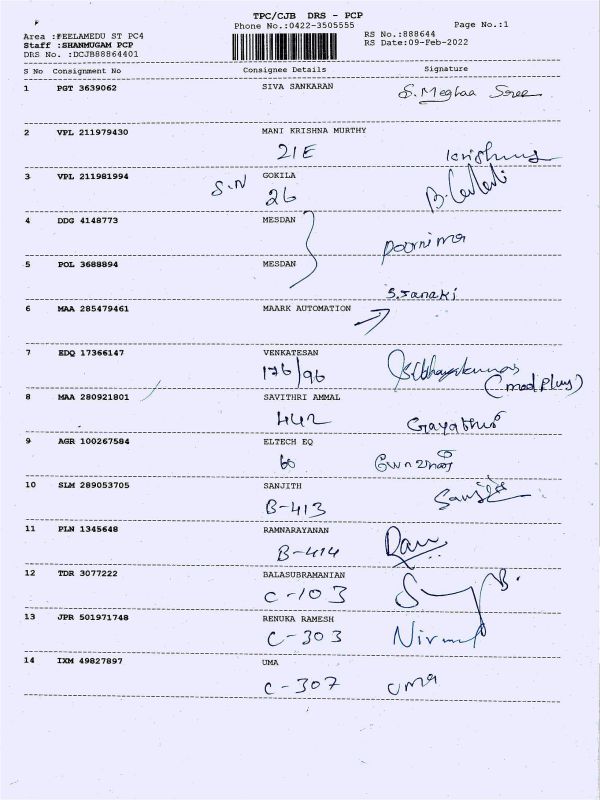 TPC/CJB DRS - PCP
Phone No.:0422-3505555 Page No.:1
Area :PEELAMEDU ST PC4 RS No.:888644
Staff :SHANMUGAM PCP RS Date:09-Feb-2022
DRS No. :DCJB88864401
S No Consignment No Consignee Details Signature
1 PGT 3639062 SIVA SANKARAN S. Meghaa Sree
2 VPL 211979430 MANI KRISHNA MURTHY
21E Krishna
3 VPL 211981994 GOKILA
S.N 26
4 DDG 4148773 MESDAN
Poornima
5 POL 3688894 MESDAN
S. Janaki
6 MAA 285479461 MAARK AUTOMATION
7 EDQ 17366147 VENKATESAN
176/96
(med plus)
8 MAA 280921801 SAVITHRI AMMAL
442 Gayathri
9 AGR 100267584 ELTECH EQ
60
10 SLM 289053705 SANJITH
B-413 Sanjith
11 PLN 1345648 RAMNARAYANAN
B-414 Ram
12 TDR 3077222 BALASUBRAMANIAN
C-103
13 JPR 501971748 RENUKA RAMESH
C-303
14 IXM 49827897 UMA
C-307 uma